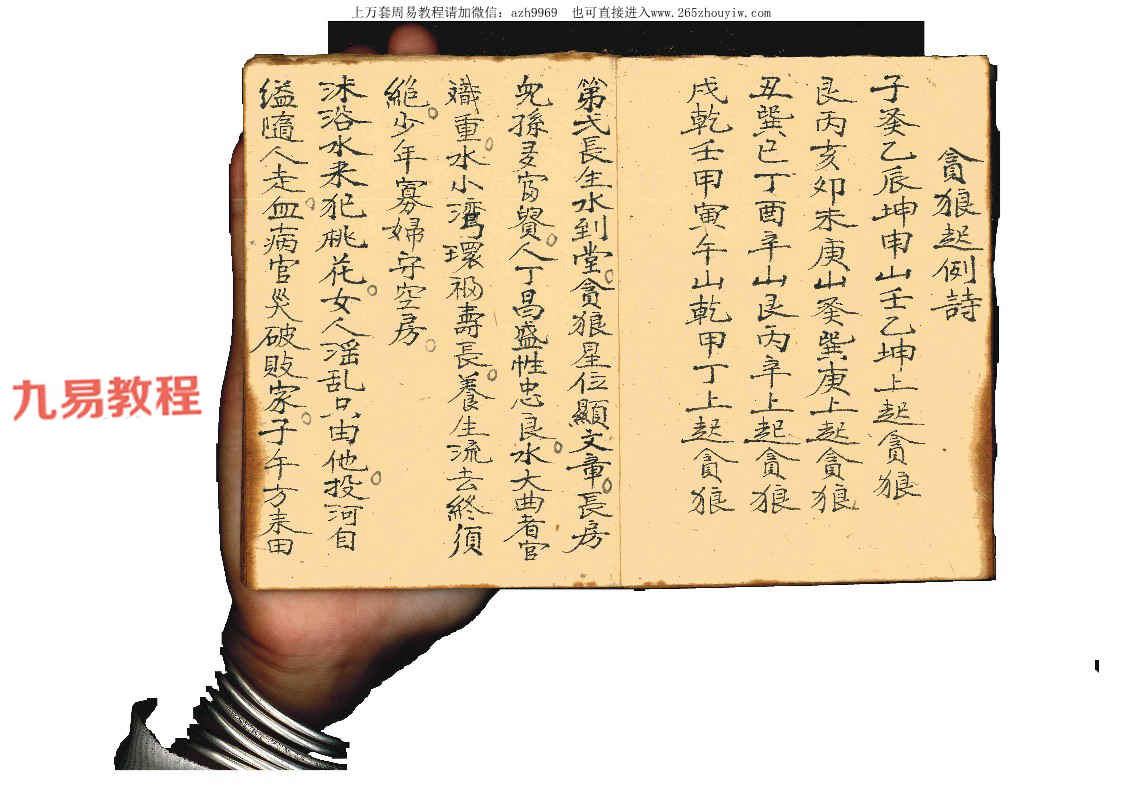 上万套周易教程请加微信：azh9969 也可直接进入www.265zhouyiw.com
貪狼起例詩
子癸乙辰坤申山壬乙坤上起貪狼
艮丙亥卯未庚山癸巽庚上起貪狼
丑巽巳丁酉辛山艮丙辛上起貪狼
戌乾壬甲寅午山乾甲丁上起貪狼
第弍長生水到堂貪狼星位顯文章長房
兒孫富貴人丁昌盛性忠良水大曲者官
職重水小灣環福壽長養生流去終須
絕少年寡婦守空房
沐浴水来犯桃花女人淫乱只由他投河自
缢隨人走血病官災破敗家子午方来田
九易教程